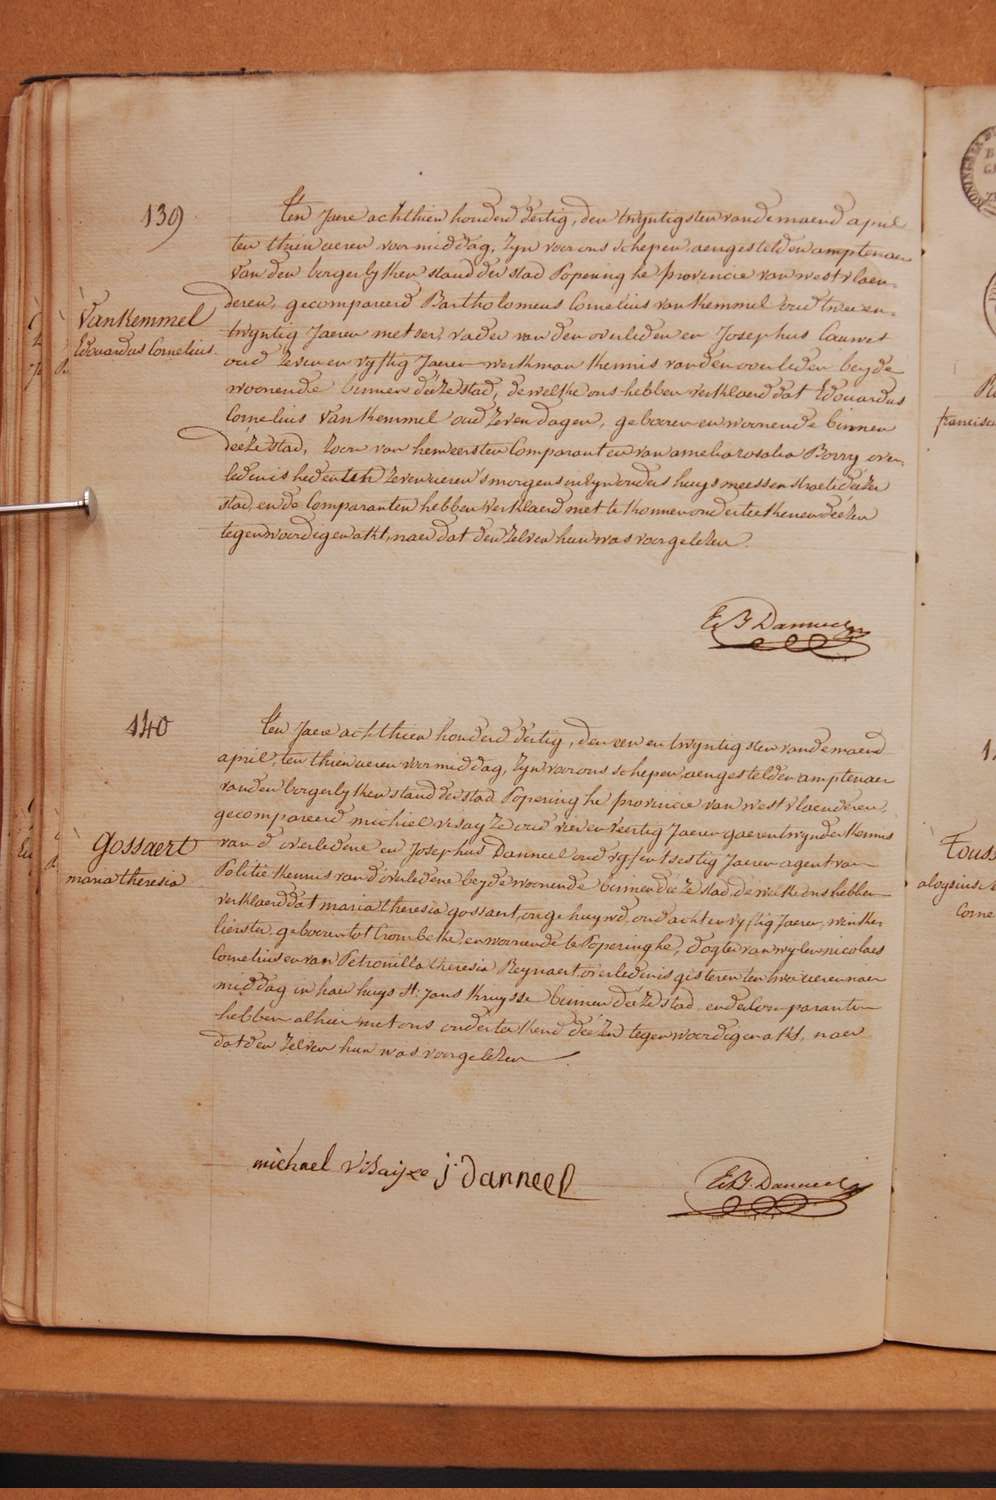 139
Ten Jaere achthien honderd dertig, den twyntigsten van de maend april
ten thien ueren voormiddag, zyn voor ons schepen, aengestelden amptenaer
van den borgerlyken stand der stad Poperinghe provincie van westvlaen-
deren, gecompareerd Bartholomeus Cornelius van Kemmel oud twee en
Vankemmel
Edouardus Cornelius
twyntig Jaeren metser, vader van den overleden en Josephus Cauwet
oud zeven en vyftig Jaeren werkman kennis van den overleden beyde
woonende binnen deeze stad, de welke ons hebben verklaerd dat Edouardus
Cornelius Van Kemmel oud zeven dagen, geboren en woonende binnen
deeze stad, zoon van hem eersten Comparant en van amelia rosalia Borry over-
leden is heden ten zeven ueren s'morgens in zyn ouders huys meessen straet deezer
stad, en de Comparanten hebben verklaerd niet te konnen onderteekenen deezen
tegenwoordigen akt, naer dat den zelven hun was voorgelezen.
E B Danneel
140
Ten Jaere achthien honderd dertig, den een en twyntigsten van de maend
april, ten thien ueren voormiddag, zyn voor ons schepen, aengestelden amptenaer
van den borgerlyken stand der stad Poperinghe provincie van westvlaenderen,
gecompareerd michiel visayze oud vier en veertig Jaeren gaerentwynder kennis
Gossaert
maria theresia
van d'overledene en Josephus Danneel oud vyf en tsestig Jaeren agent van
Politie kennis van d'overledene beyde woonende binnen deeze stad, de welke ons hebben
verklaerd dat maria theresia gossaert, ongehuywd, oud acht en vyftig Jaeren, winke
lierster, geboren tot Crombeke, en woonende te Poperinghe, dogter van wylen nicolaes
Cornelius en van Petronilla theresia Reynaert, overleden is gisteren ten twee ueren naer
middag in haer huys St. Jans Kruysse binnen deeze stad, en de Comparanten
hebben alhier met ons onderteekend deezen tegenwoordigen akt, naer
dat den zelven hun was voorgelezen
michael visaijze j. danneel
E B. Danneel
francisc
Touss
aloysius
Corne